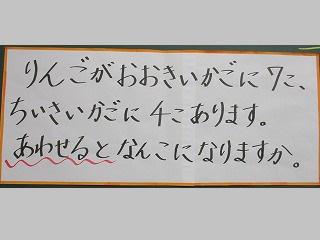 りんごがおおきいかごに7こ、
ちいさいかごに4こあります。
あわせるとなんこになりますか。